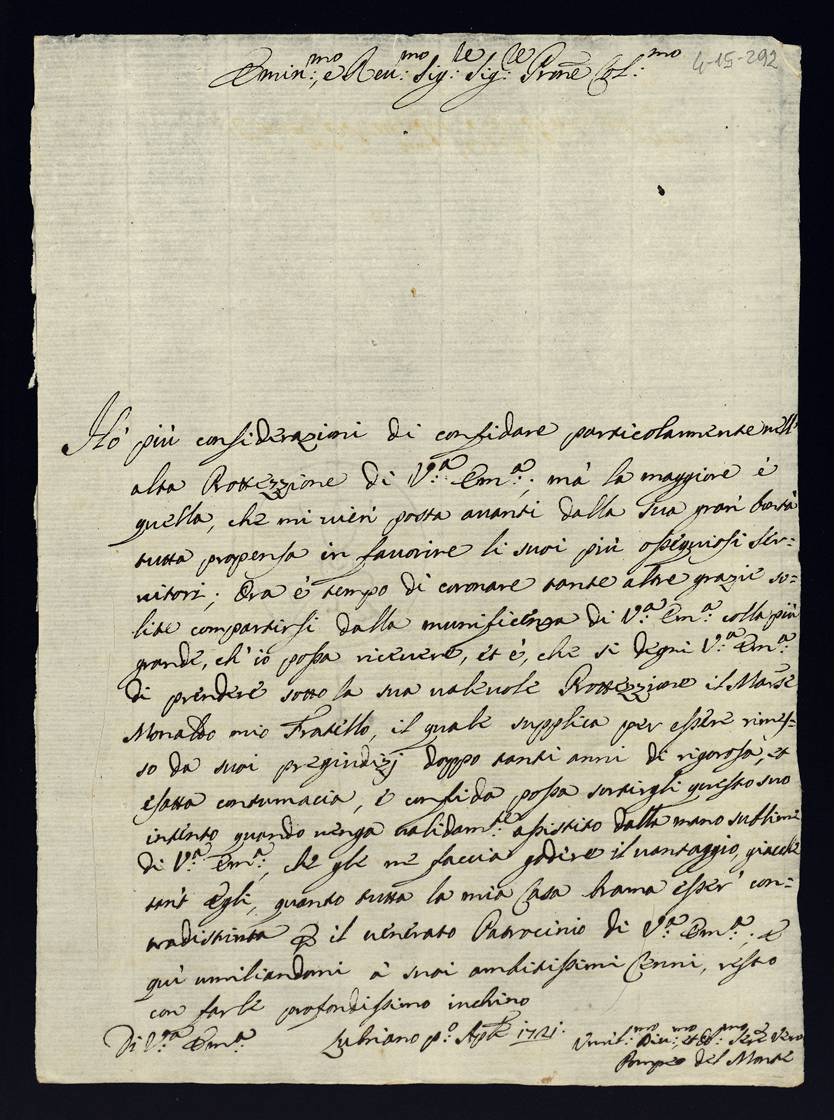 Emin:mo, e Reu:mo Sig:re Sig:re Prone Col:mo 4-15-292
Hò più considerazioni di confidare particolarmente nell'
alta Protezzione di V:ra Em:a; mà la maggiore è
quella, che mi vien' posta auanti dalla Sua gran' bontà
tutta propensa in fauorire li suoi più ossequiosi ser=
uitori; Ora è tempo di coronare tante altre grazie so=
lite compartirsi dalla munificenza di V:ra Em:a colla più
grande, ch'io possa riceuere, et è, che si degni V:ra Em:a
di prendere sotto la sua ualeuole Protezzione il Marse
Monaldo mio Fratello, il quale supplica per essere rimes=
so da suoi pregiudizj doppo tanti anni di rigorosa, et
esatta contumacia, e confida possa sortirgli questo suo
intento quando uenga ualidam:te assistito dalla mano sublime
di V:ra Em:a, che gle ne faccia godere il uantaggio, giacche
tant' Egli, quanto tutta la mia Casa brama esser' con=
tradistinta p il uenerato Patrocinio di V:ra Em:a; e
quì umiliandomi à suoi ambitissimi Cenni, resto
con farle profondissimo inchino
Di V:ra Em:a Lubriano p:o Aple 1721:
Umil:mo Diu:mo, et Ob:mo Serre Vero
Pompeo del Monte